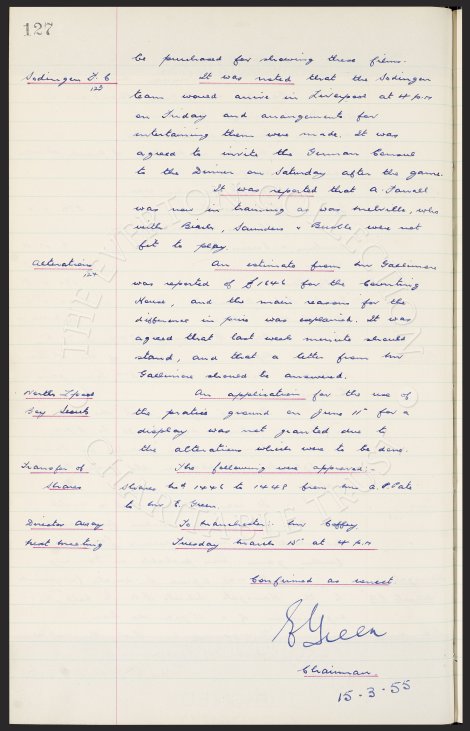 127
be purchased for showing these films.
Sodingen F. C
123
It was noted that the Sodingen
team would arrive in Liverpool at 4 p.m
on Friday and arrangements for
entertaining them were made. It was
agreed to invite the German Consul
to the Dinner on Saturday after the game.
It was reported that A. Farrall
was now in training as was Melville, who
with Beeby, Saunders & Buckle were not
fit to play.
Alterations
124
An estimate from Mr Gallimore
was reported of £1646 for the Counting
House, and the main reasons for the
difference in price was explained. It was
agreed that last week minute should
stand, and that a letter from Mr
Gallimore should be answered.
North L'pool
Boy Scouts
An application for the use of
the practice ground on June 11th for a
display was not granted due to
the alterations which were to be done.
Transfer of
Shares
The following were approved:-
Shares Nos 1446 to 1448 from Mr A.P. Tate
to Mr E. Green.
Director away
To Manchester:- Mr Coffey
Next meeting
Tuesday March 15th at 4 p.m
Confirmed as correct
E Green
Chairman.
15-3-55
THE EVERTON COLLECTION
CHARITABLE TRUST